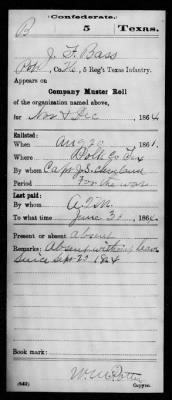 (Confederate.)
B 5 Texas.
J. F. Bass
Pvt, Co. H, 5 Reg't Texas Infantry.
Appears on
Company Muster Roll
of the organization named above,
for Nov & Dec, 1864
Enlisted:
When Aug 20, 1861.
Where Polk Co Tex
By whom Capt J. S. Cleveland
Period For the war
Last paid:
By whom
To what time June 30, 186
Present or absent absent
Remarks: Absent without leave
Since Sept 20 1864
Book mark:
(642) Copyist.